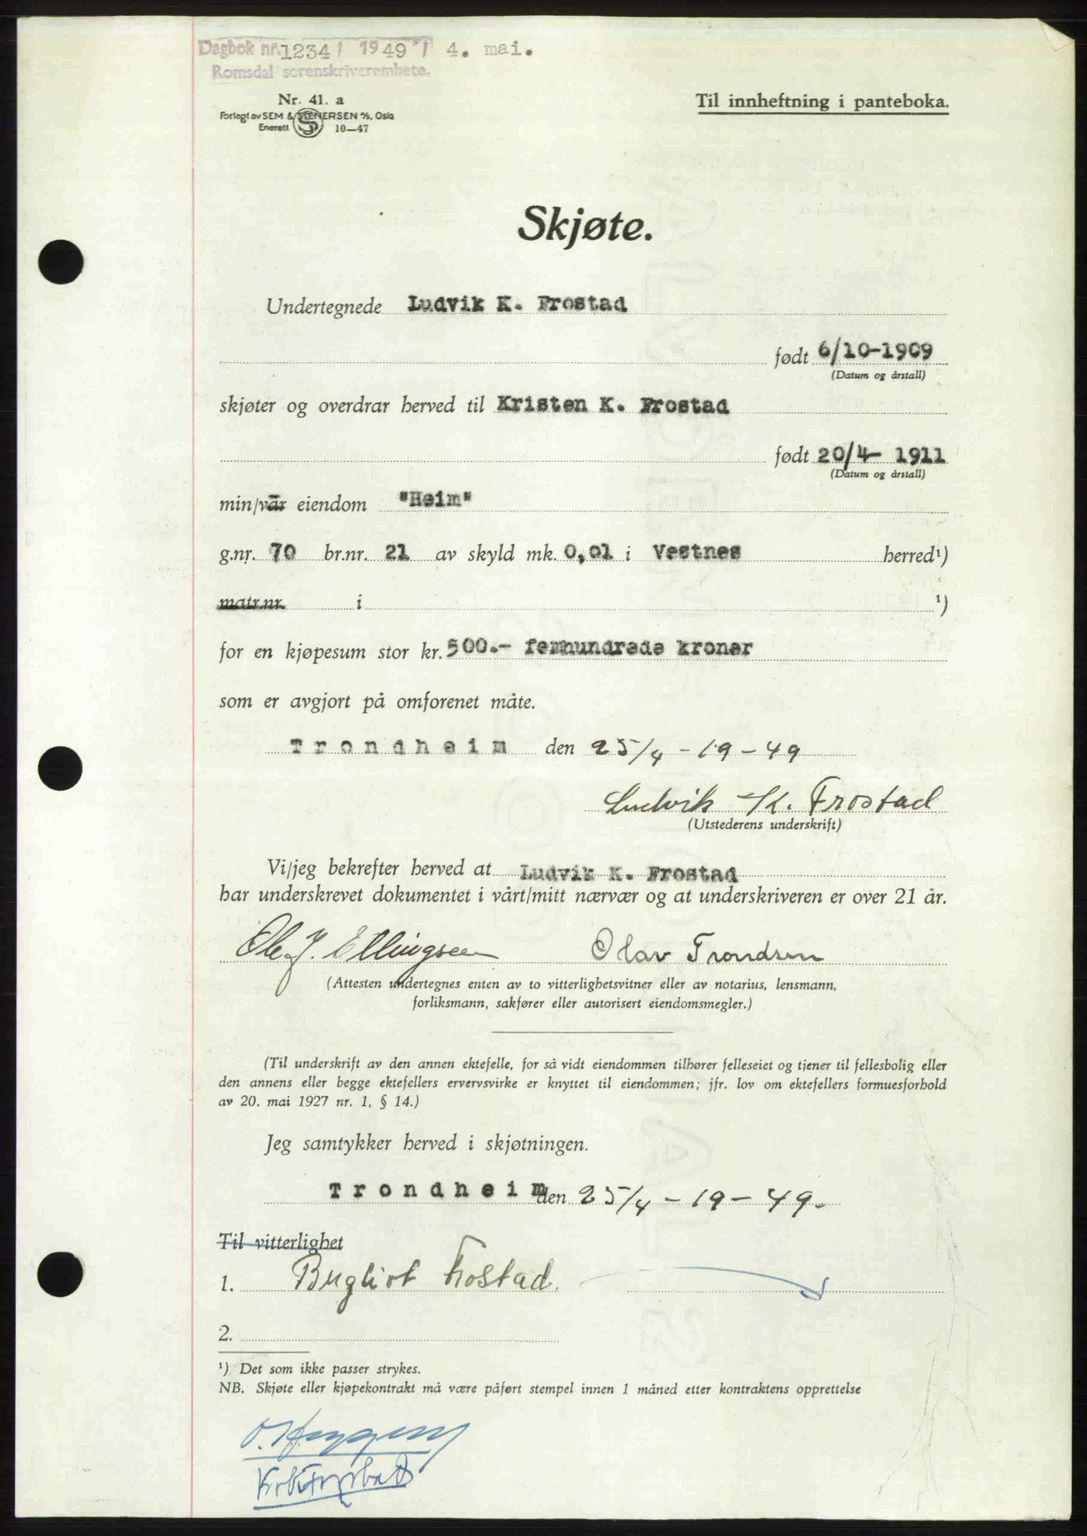 Dagbok nr. 1234 / 1949 / 4. mai.
Romsdal sorenskriverembete.
Nr. 41. a
Forlagt av SEM & STENERSEN A/S, Oslo
Enerett 10—47
Til innheftning i panteboka.
Skjøte.
Undertegnede Ludvik K. Frostad
født 6/10-1909
(Datum og årstall)
skjøter og overdrar herved til Kristen K. Frostad
født 20/4- 1911
(Datum og årstall)
min/vår eiendom "Heim"
g.nr. 70 br.nr. 21 av skyld mk. 0,01 i Vestnes herred¹)
matr.nr. i ¹)
for en kjøpesum stor kr. 500.- femhundrede kroner
som er avgjort på omforenet måte.
Trondheim den 25/4 - 19 - 49
Ludvik K. Frostad
(Utstederens underskrift)
Vi/jeg bekrefter herved at Ludvik K. Frostad
har underskrevet dokumentet i vårt/mitt nærvær og at underskriveren er over 21 år.
Ole J. Ellingseen Olav Trondsen
(Attesten undertegnes enten av to vitterlighetsvitner eller av notarius, lensmann,
forliksmann, sakfører eller autorisert eiendomsmegler.)
(Til underskrift av den annen ektefelle, for så vidt eiendommen tilhører felleseiet og tjener til fellesbolig eller
den annens eller begge ektefellers ervervsvirke er knyttet til eiendommen; jfr. lov om ektefellers formuesforhold
av 20. mai 1927 nr. 1, § 14.)
Jeg samtykker herved i skjøtningen.
Trondheim den 25/4 - 19 - 49.
Til vitterlighet
1. Bergliot Frostad.
2.
¹) Det som ikke passer strykes.
NB. Skjøte eller kjøpekontrakt må være påført stempel innen 1 måned etter kontraktens opprettelse